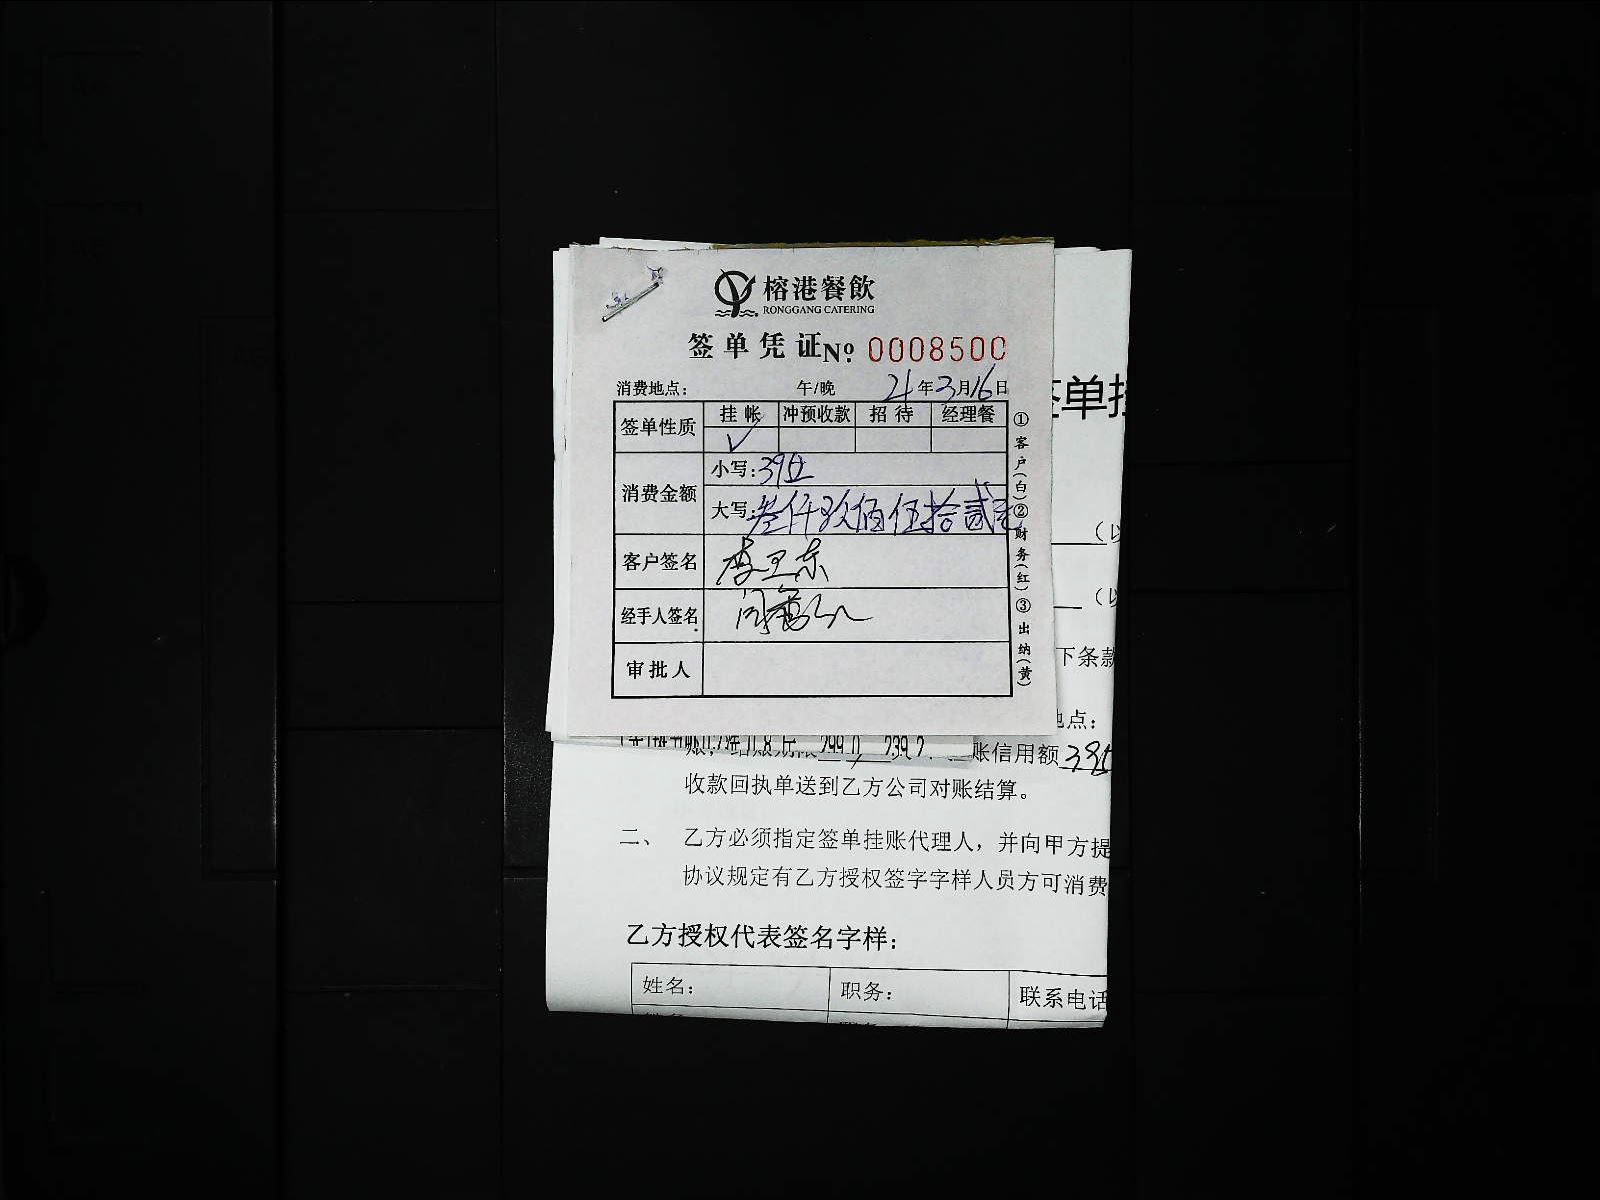 榕港餐飲
RONGGANG CATERING
签单凭证 No. 0008500
消费地点： 午/晚 21年3月16日
签单性质 挂帐 冲预收款 招待 经理餐
✓
消费金额 小写：39
大写：叁仟玖佰伍拾贰元
客户签名 李卫东
经手人签名
审批人
①客户(白)②财务(红)③出纳(黄)
签单挂
（以
（以
下条款
地点：
账信用额
收款回执单送到乙方公司对账结算。
二、 乙方必须指定签单挂账代理人，并向甲方提
协议规定有乙方授权签字字样人员方可消费
乙方授权代表签名字样：
姓名： 职务： 联系电话